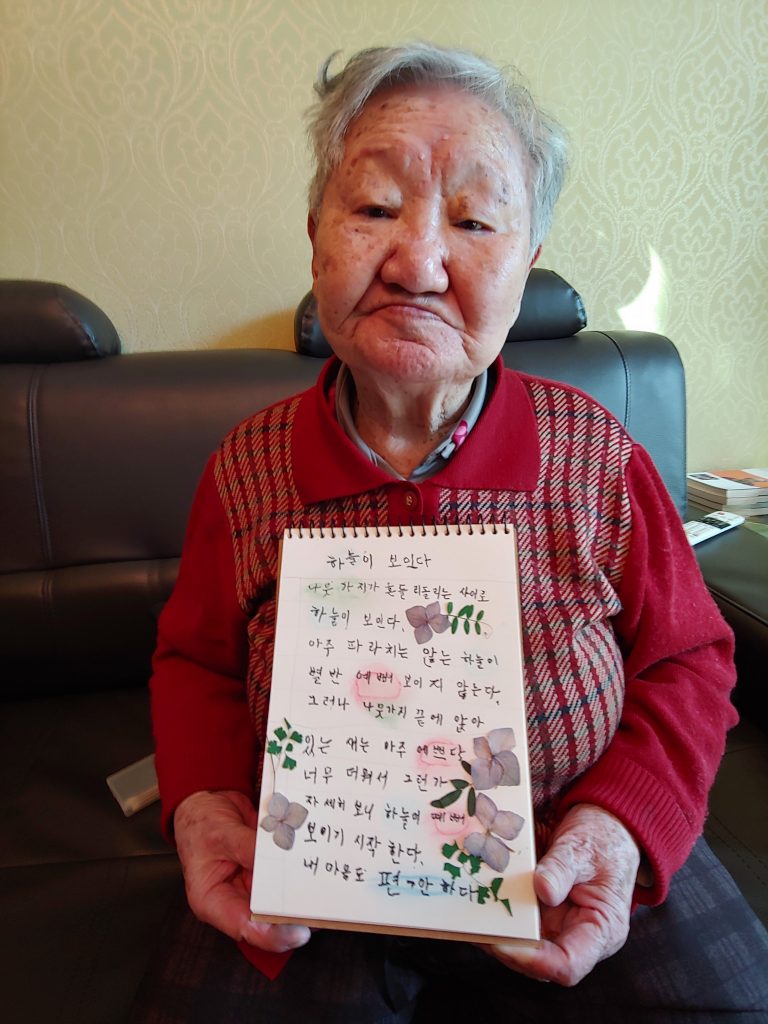 하늘이 보인다
나뭇가지가 흔들리들리는 사이로
하늘이 보인다.
아주 파라치는 않는 하늘이
별반 예뻐 보이지 않는다.
그러나 나뭇가지 끝에 앉아
있는 새는 아주 예쁘다
너무 더워서 그런가
자세히 보니 하늘이 예뻐
보이기 시작 한다.
내 마음도 편안 하다